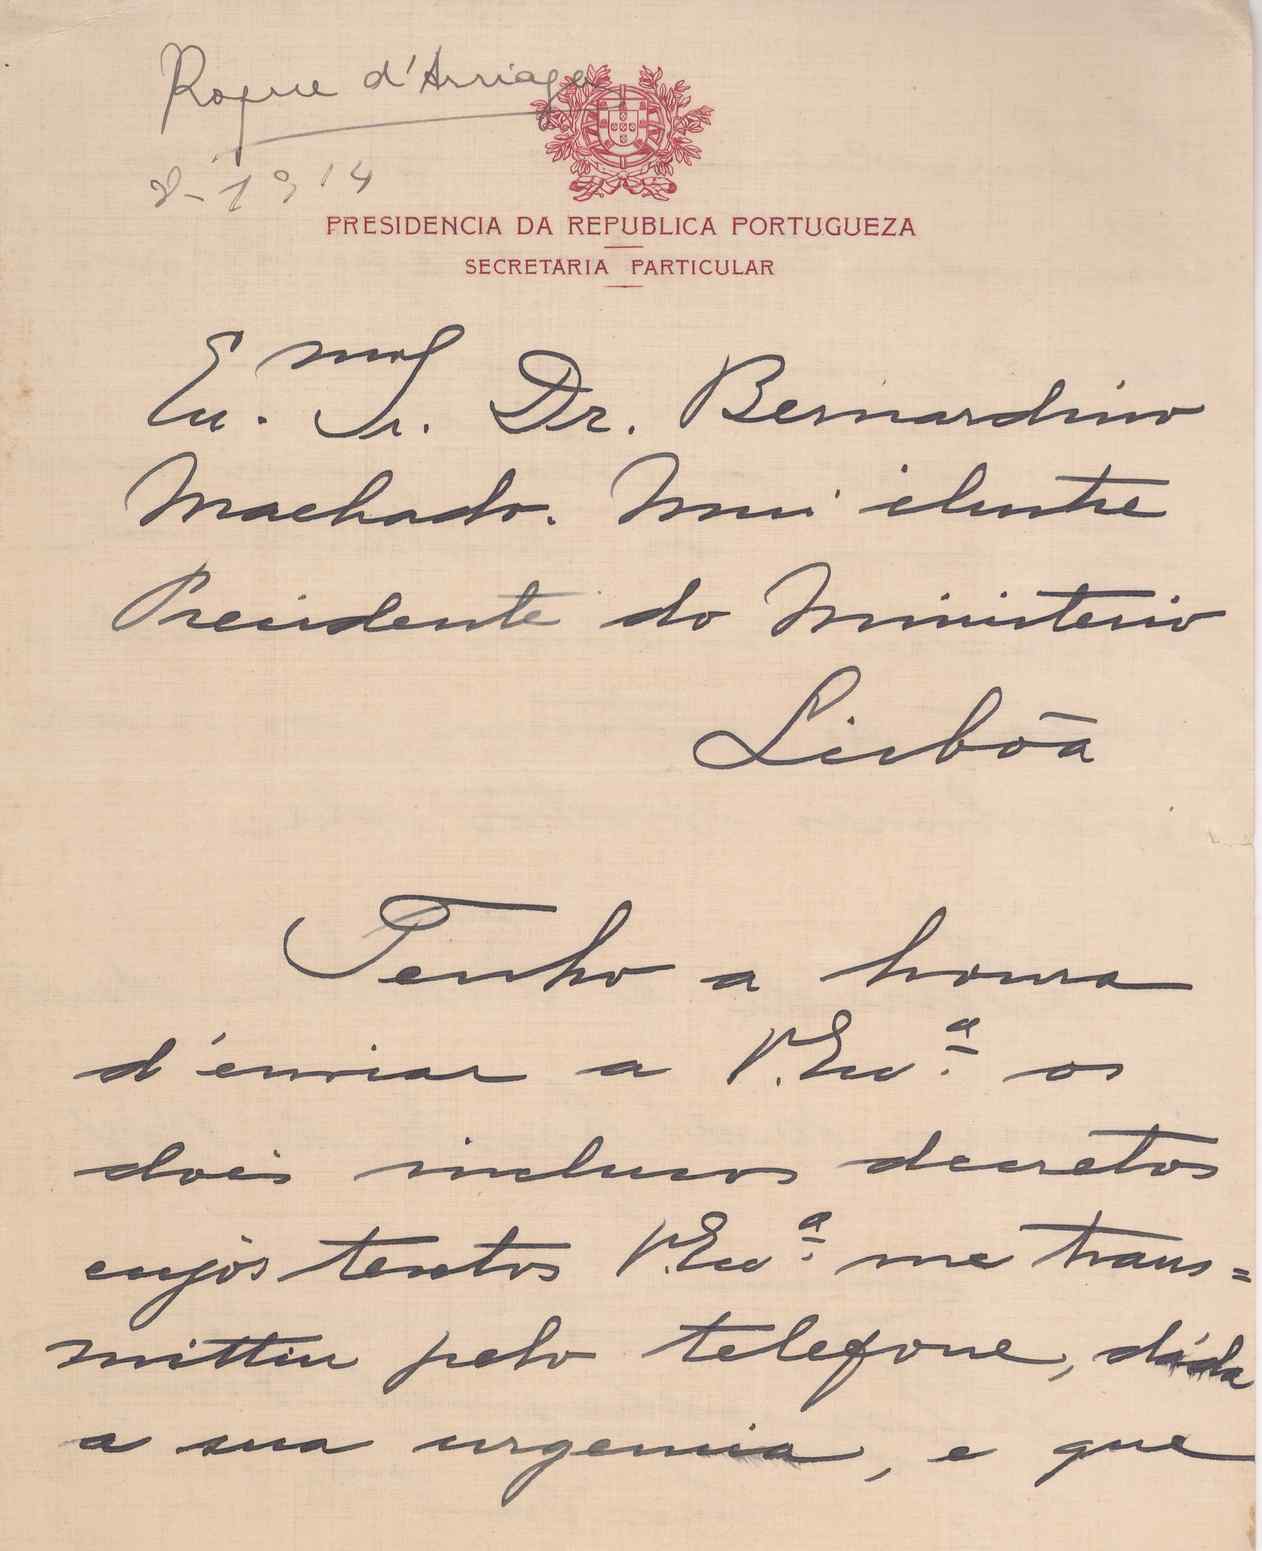 Roque d'Arriaga
8-1914
PRESIDENCIA DA REPUBLICA PORTUGUEZA
SECRETARIA PARTICULAR
Ex.mo Sr. Dr. Bernardino
Machado. Mui ilustre
Presidente do Ministerio
Lisbôa
Tenho a honra
d'enviar a V. Ex.ª os
dois inclusos decretos
cujos textos V. Ex.ª me trans=
mittiu pelo telefone, dáda
a sua urgencia, e que